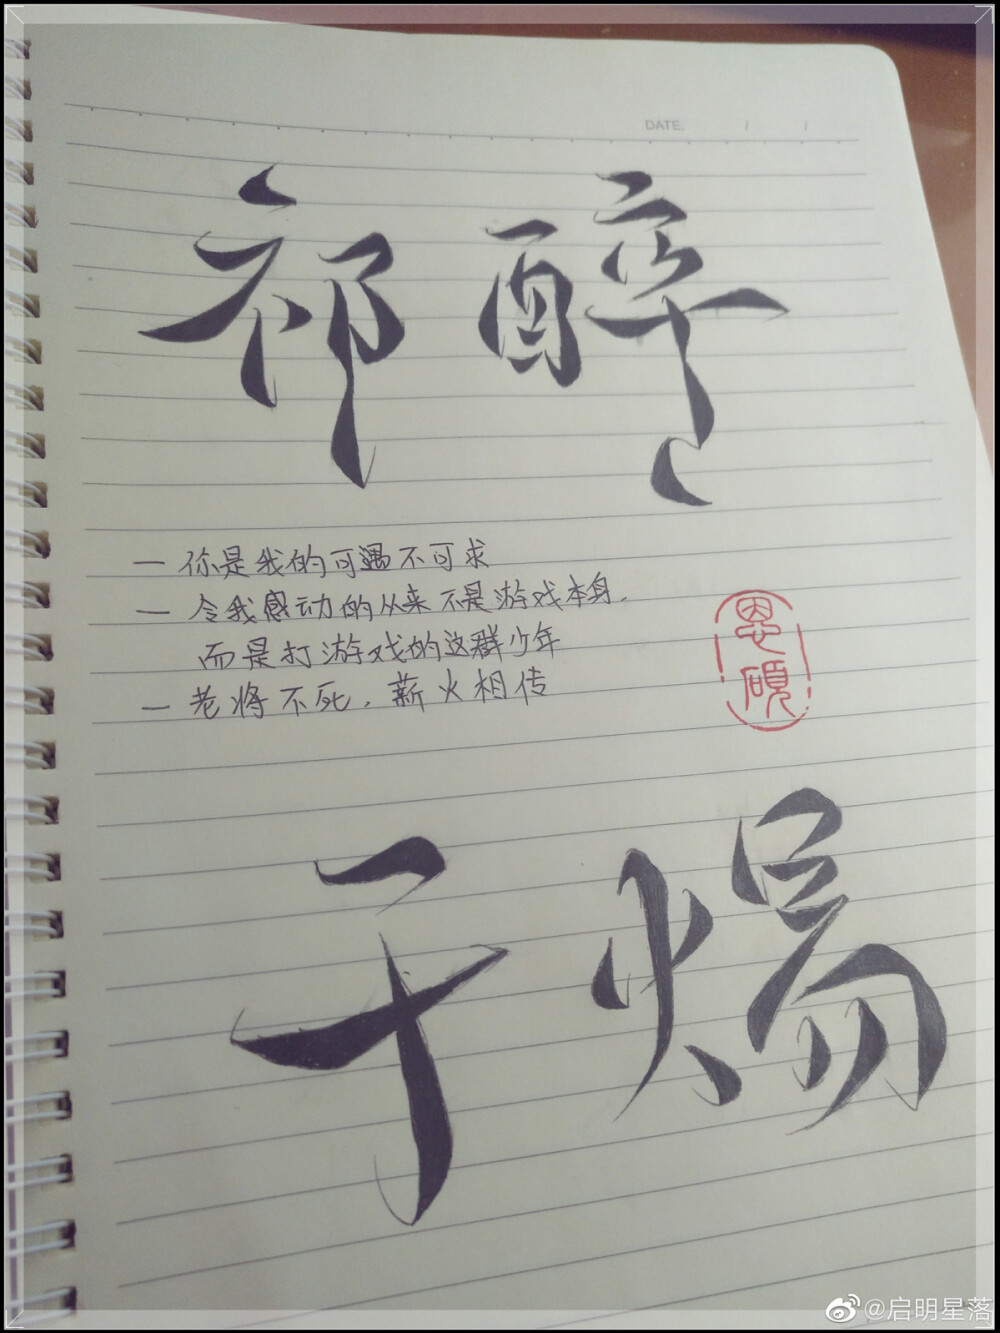 DATE. / /
祁醉
一 你是我的可遇不可求
一 令我感动的从来不是游戏本身.
而是打游戏的这群少年
一 老将不死，薪火相传
恩
硕
于炀
@启明星落